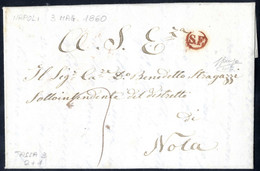 NAPOLI 3 MAG. 1860
A. S. E.
S.F.
Il Sig.r Ca.re D.n Benedetto Stragazzi
Sottointendente del distretto
di
Nola
TASSA 3